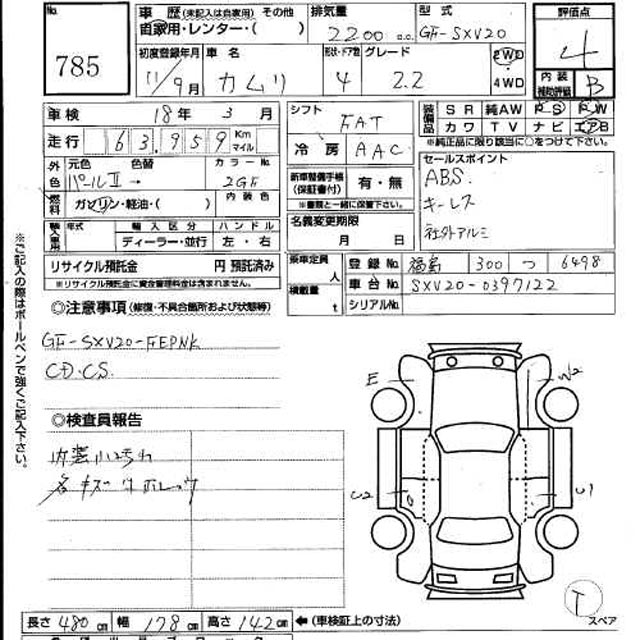 No. 785
車 歴 (未記入は自家用) その他
自家用・レンター・( )
初度登録年月 11/9月
車 名 カムリ
排気量 2200 c.c.
型 式 GF-SXV20
形状・ドア数 4
グレード 2.2
2WD
4WD
評価点 4
内装補助評価 B
車検 18年 3月
走行 63,959 Km マイル
外色 元色 色替 カラーNo.
パールII → 2GE
燃料 ガソリン・軽油・( ) 内装色
輸入車用 年式 輸入区分 ハンドル
ディーラー・並行 左・右
リサイクル預託金 円 預託済み
※リサイクル預託金に資金管理料金は含まれません。
シフト FAT
冷房 AAC
新車整備手帳(保証書付) 有・無
※書類と一緒に保管下さい。
名義変更期限
月 日
乗車定員 人
積載量 t
装備品 SR 純AW PS PW
カワ TV ナビ エアB
※純正品に限り該当に○をつけて下さい。
セールスポイント
ABS.
キーレス
社外アルミ
登録No. 福島 300 つ 6498
車台No. SXV20-0397122
シリアルNo.
◎注意事項(修復・不具合箇所および状態等)
GF-SXV20-FEPNK
CD.CS.
◎検査員報告
内装小汚れ
各キズ
E W2
U2 U1
T スペア
長さ 480 cm 幅 178 cm 高さ 142 cm ←(車検証上の寸法)
※ご記入の際はボールペンで強くご記入下さい。